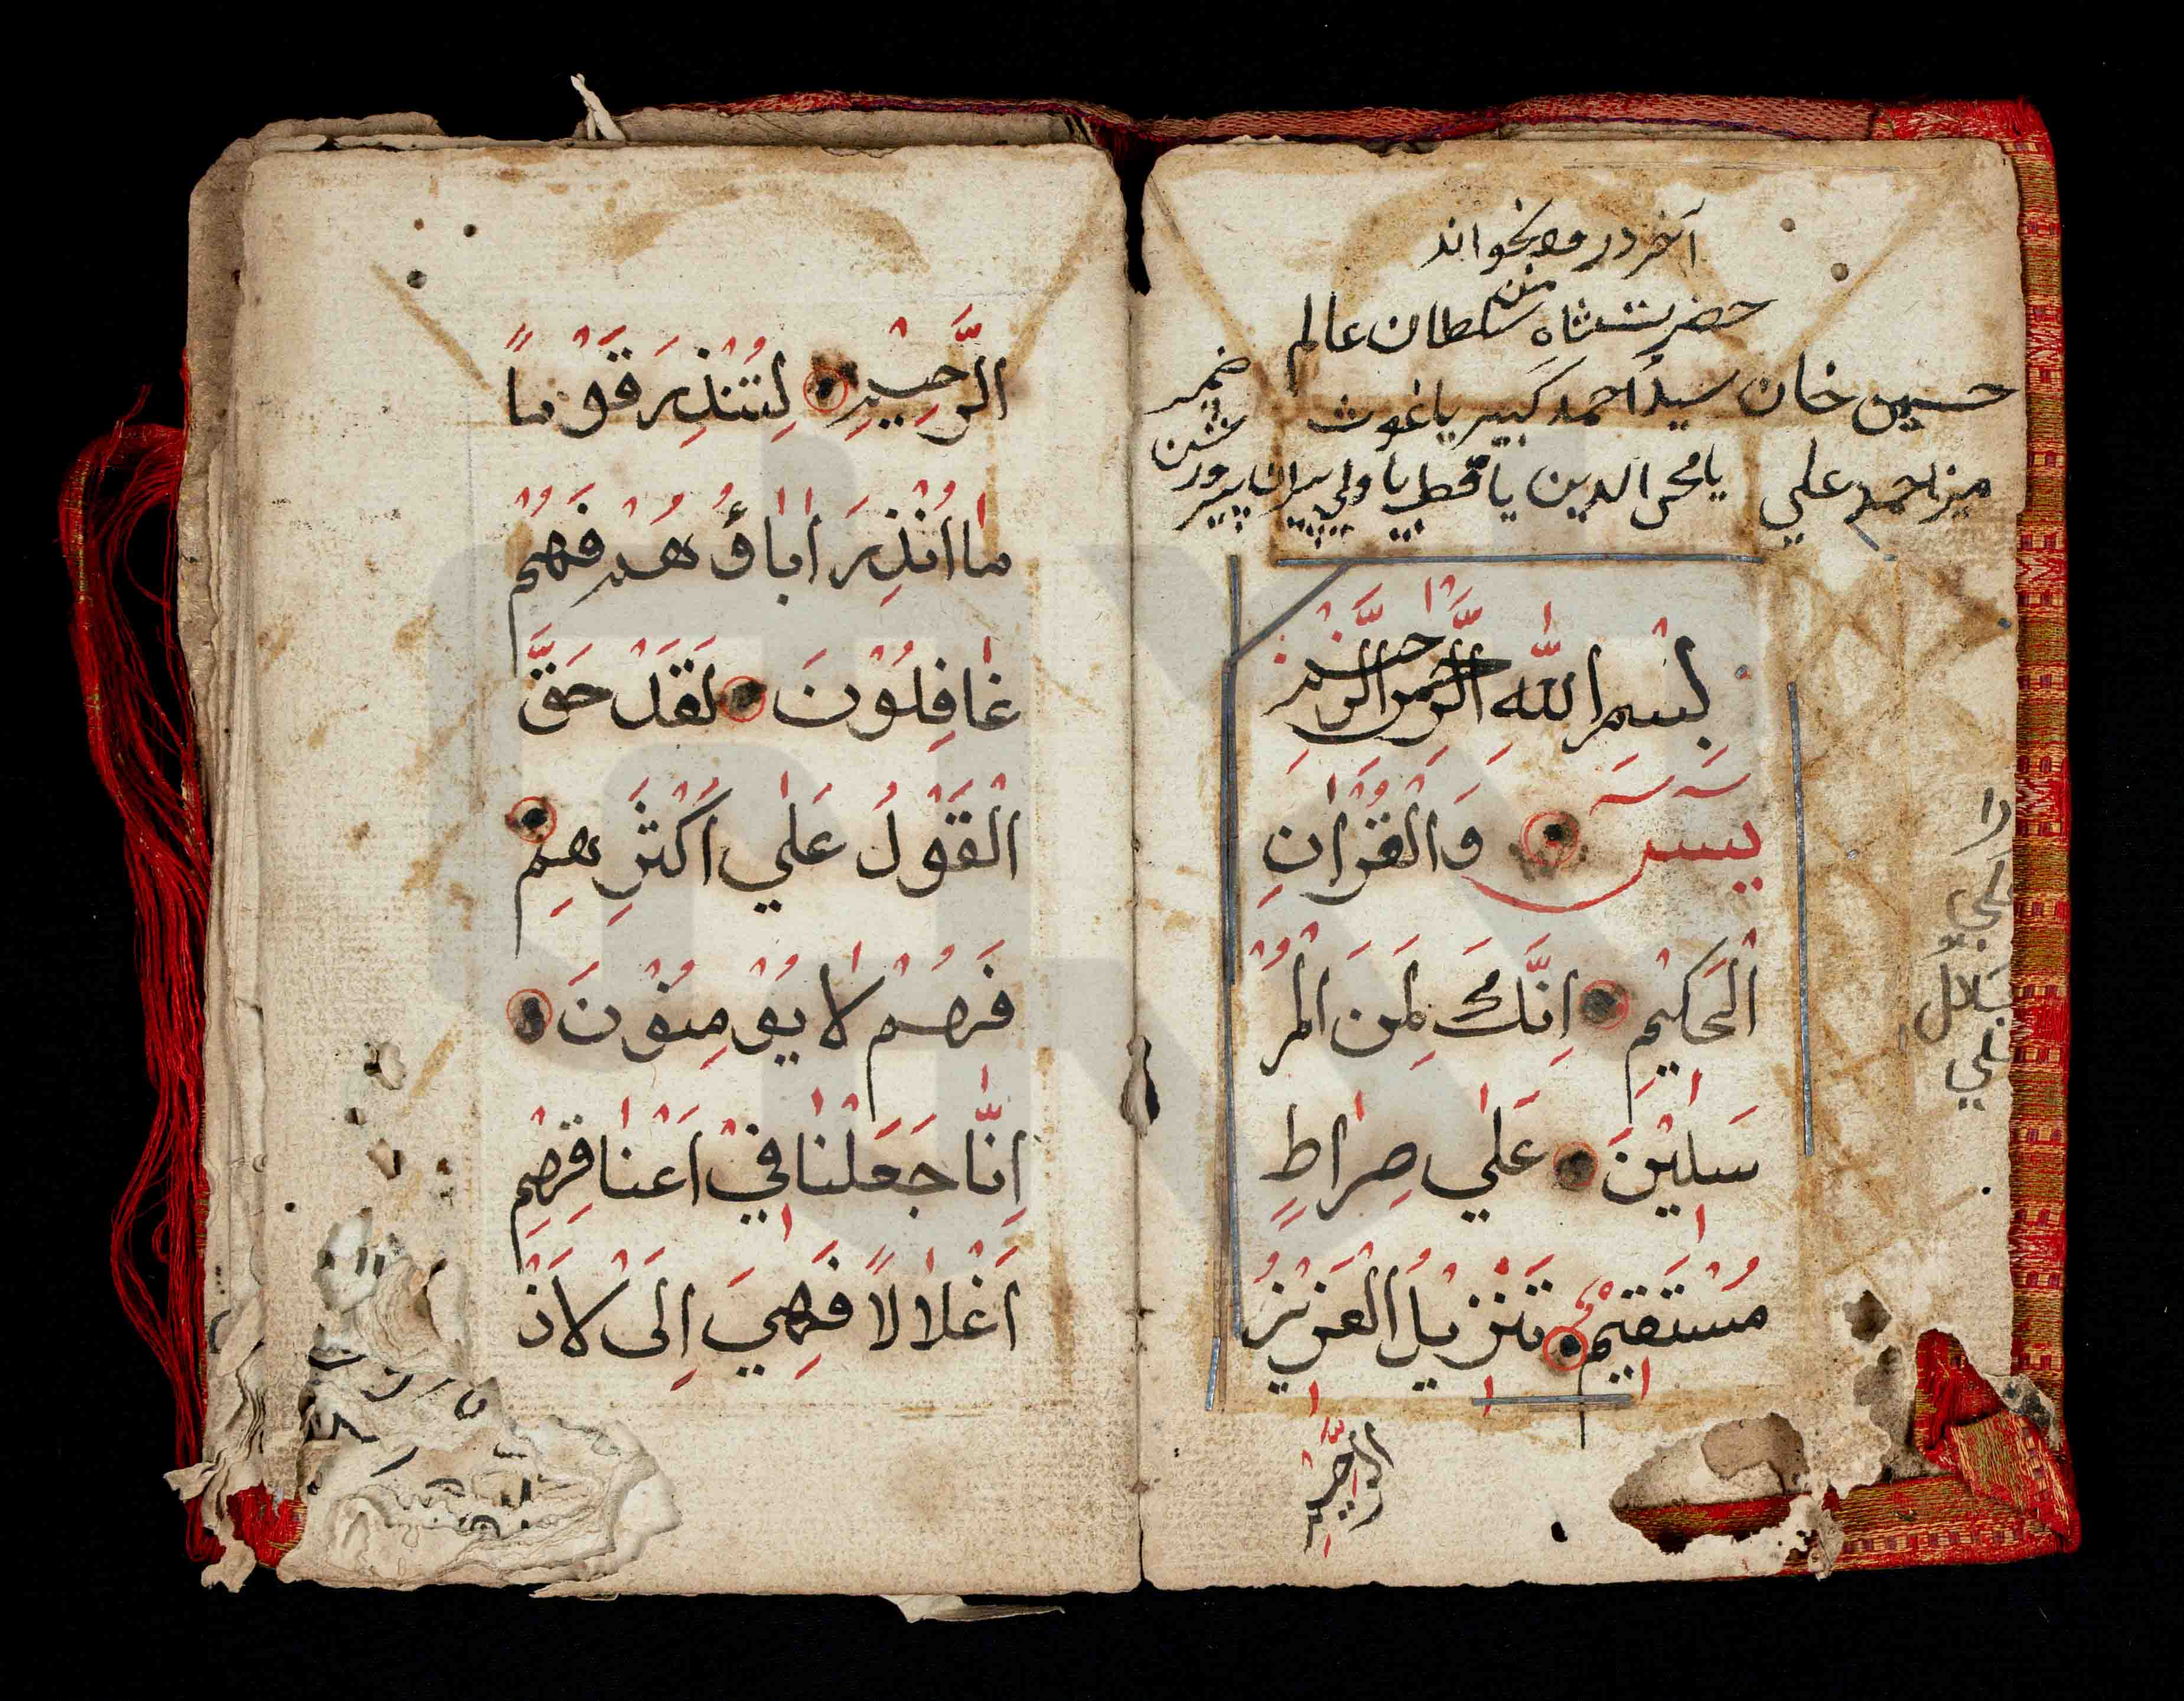 آخر درود بخواند
حضرت شاه سلطان عالم
حسین خان سید احمد کبیر یا غوث
میر احمد علي یا محي الدین یا قطب یا ولي پیران پیر
ضمیر
روشن
بِسْمِ اللّٰهِ الرَّحْمٰنِ الرَّحِيْمِ
يٰسٓ وَالْقُرْاٰنِ
الْحَكِيْمِ اِنَّكَ لَمِنَ الْمُرْ
سَلِيْنَ عَلٰي صِرَاطٍ
مُسْتَقِيْمٍ تَنْزِيْلَ الْعَزِيْزِ
الرَّحِيْمِ
الرَّحِيْمِ لِتُنْذِرَ قَوْمًا
مَا اُنْذِرَ اٰبَاؤُهُمْ فَهُمْ
غَافِلُوْنَ لَقَدْ حَقَّ
الْقَوْلُ عَلٰي اَكْثَرِهِمْ
فَهُمْ لَا يُؤْمِنُوْنَ
اِنَّا جَعَلْنَا فِيْ اَعْنَاقِهِمْ
اَغْلَالًا فَهِيَ اِلَى الْاَذْ